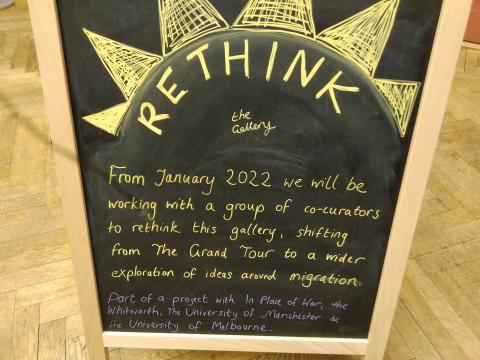 RETHINK
the
Gallery
From January 2022 we will be
working with a group of co-curators
to rethink this gallery, shifting
from The Grand Tour to a wider
exploration of ideas around migration.
Part of a project with In Place of War, the
Whitworth, The University of Manchester &
the University of Melbourne.